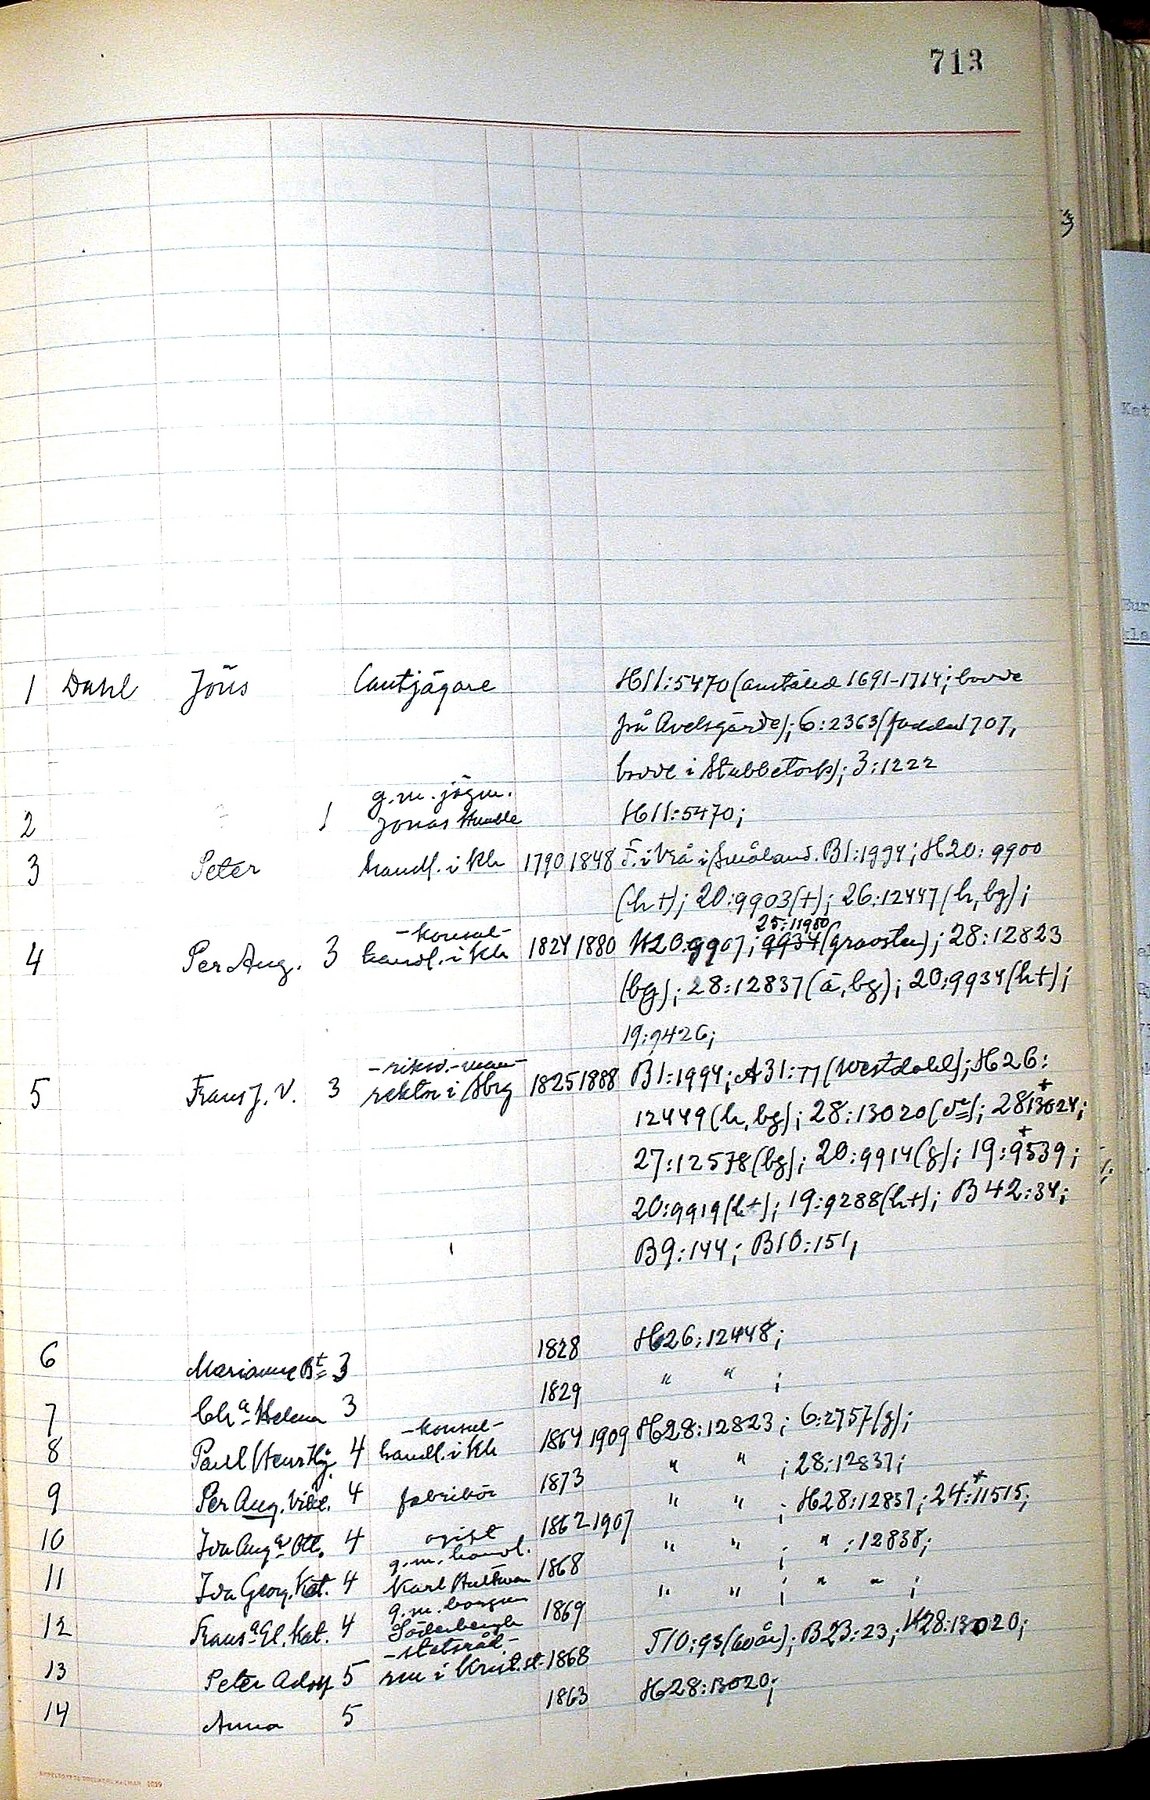 713
1 Dahl Jöns Lantjägare H11:5470 (anställd 1691-1714; bodde
från Avelsgärde); 6:2363 (fadder 1707,
bodde i Stubbetorp); 3:1222
g.m. jägm.
2 1 Jonas Humble H11:5470;
3 Peter handl. i Klr 1790 1848 F. i Vrå i Småland. B1:1994; H20:9900
(h+); 20:9903(+); 26:12447 (h, bg);
-konsul- 25:11950
4 Per Aug. 3 handl. i Klr 1824 1880 H20:9907; 9934 (gravsten); 28:12823
(bg); 28:12837 (ä, bg); 20:9934 (h+);
19:9426;
-riksd.-man-
5 Frans J. V. 3 rektor i 1825 1888 B1:1994; A31:77 (Westdahl); H26:
12449 (h, bg); 28:13020; 28:13024+;
27:12578 (bg); 20:9914 (g); 19:9539+;
20:9919 (h+); 19:9288 (h+); B42:34;
B9:144; B10:151;
6 Marianne Bt 3 1828 H26:12448;
7 Cha Helena 3 1829 " " ;
-konsul-
8 Paul Henr. 4 handl. i Klr 1864 1909 H28:12823; 6:2757 (g);
9 Per Aug. Vilh. 4 fabrikör 1873 " " ; 28:12837;
10 Ida Auga Ott. 4 ogift 1862 1907 " " ; H28:12837; 24:11515+;
g.m. handl.
11 Ida Georg. Kat. 4 Karl Hultman 1868 " " ; " :12838;
g.m. borgm
12 Fransa El. Kat. 4 Söderbergh 1869 " " ; " " ;
-statsråd-
13 Peter Adolf 5 i Krist.st. 1868 T10:93 (60 år); B23:23; H28:13020;
14 Anna 5 1863 H28:13020;